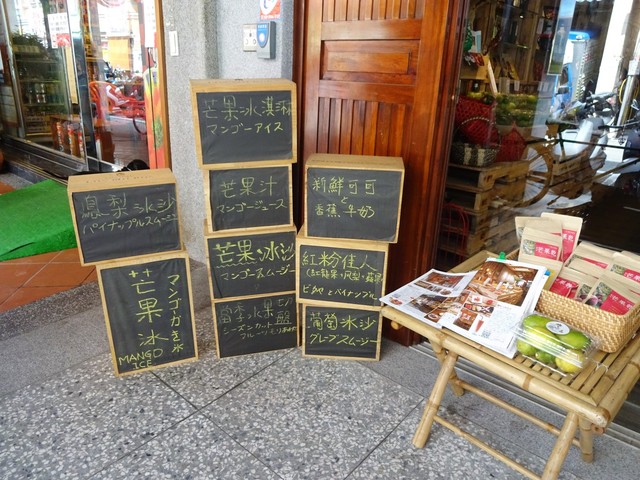 鳳梨冰沙
パイナップルスムージー
芒果冰
マンゴーかき氷
MANGO
ICE
芒果冰淇淋
マンゴーアイス
芒果汁
マンゴージュース
芒果冰沙
マンゴースムージー
當季水果切盤
シーズンカット
フルーツ
新鮮可可
と
香蕉牛奶
紅粉佳人
葡萄冰沙
グレープスムージー